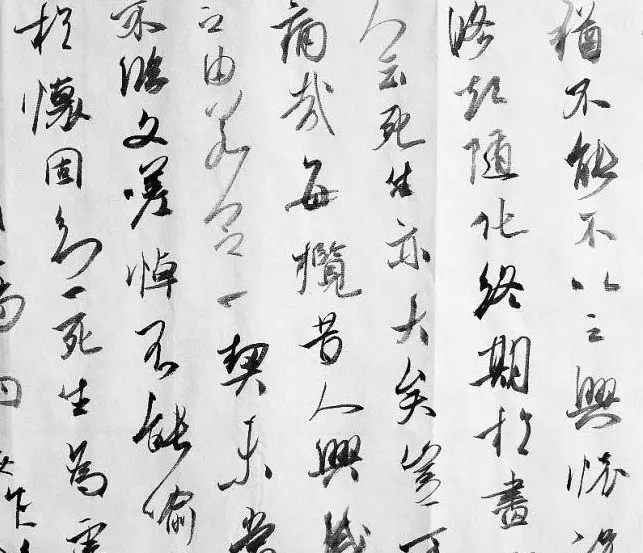 猶不能不以之興懷況
脩短隨化終期於盡
人云死生亦大矣豈不
痛哉每攬昔人興感
之由若合一契未嘗
不臨文嗟悼不能喻
於懷固知一死生為虛